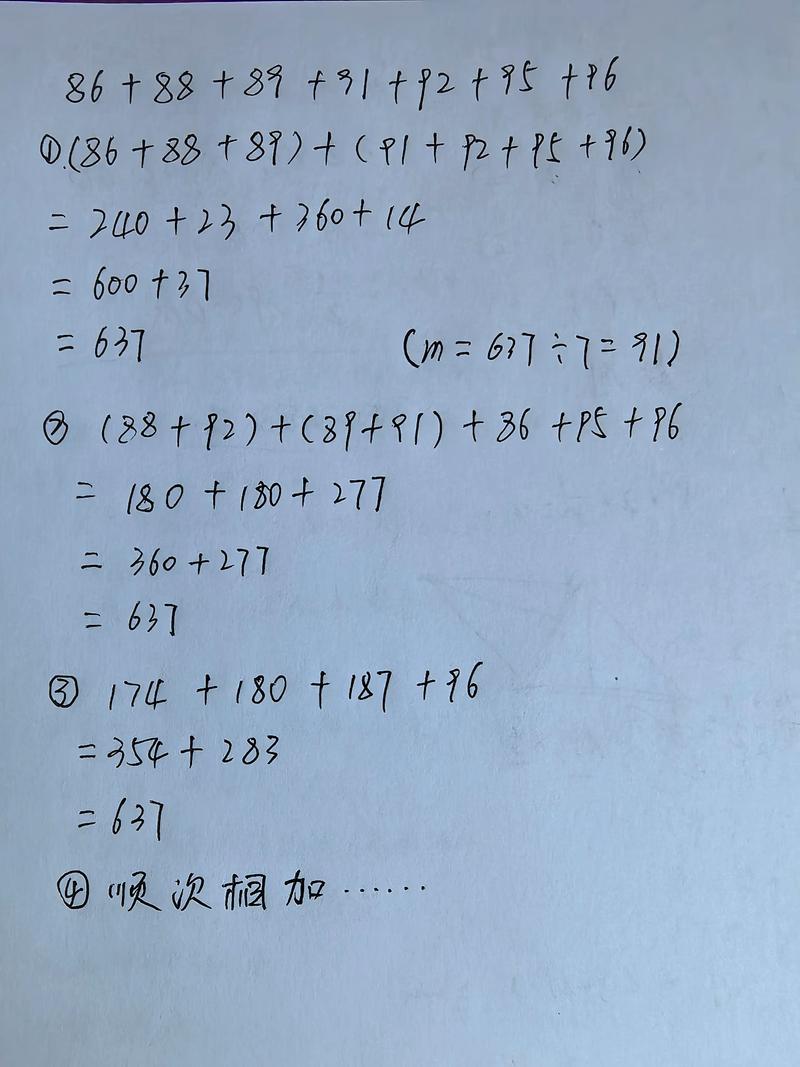 86+88+89+91+92+95+96
①.(86+88+89)+(91+92+95+96)
=240+23+360+14
=600+37
=637 (m=637÷7=91)
② (88+92)+(89+91)+86+95+96
=180+180+277
=360+277
=637
③ 174+180+187+96
=354+283
=637
④ 顺次相加……